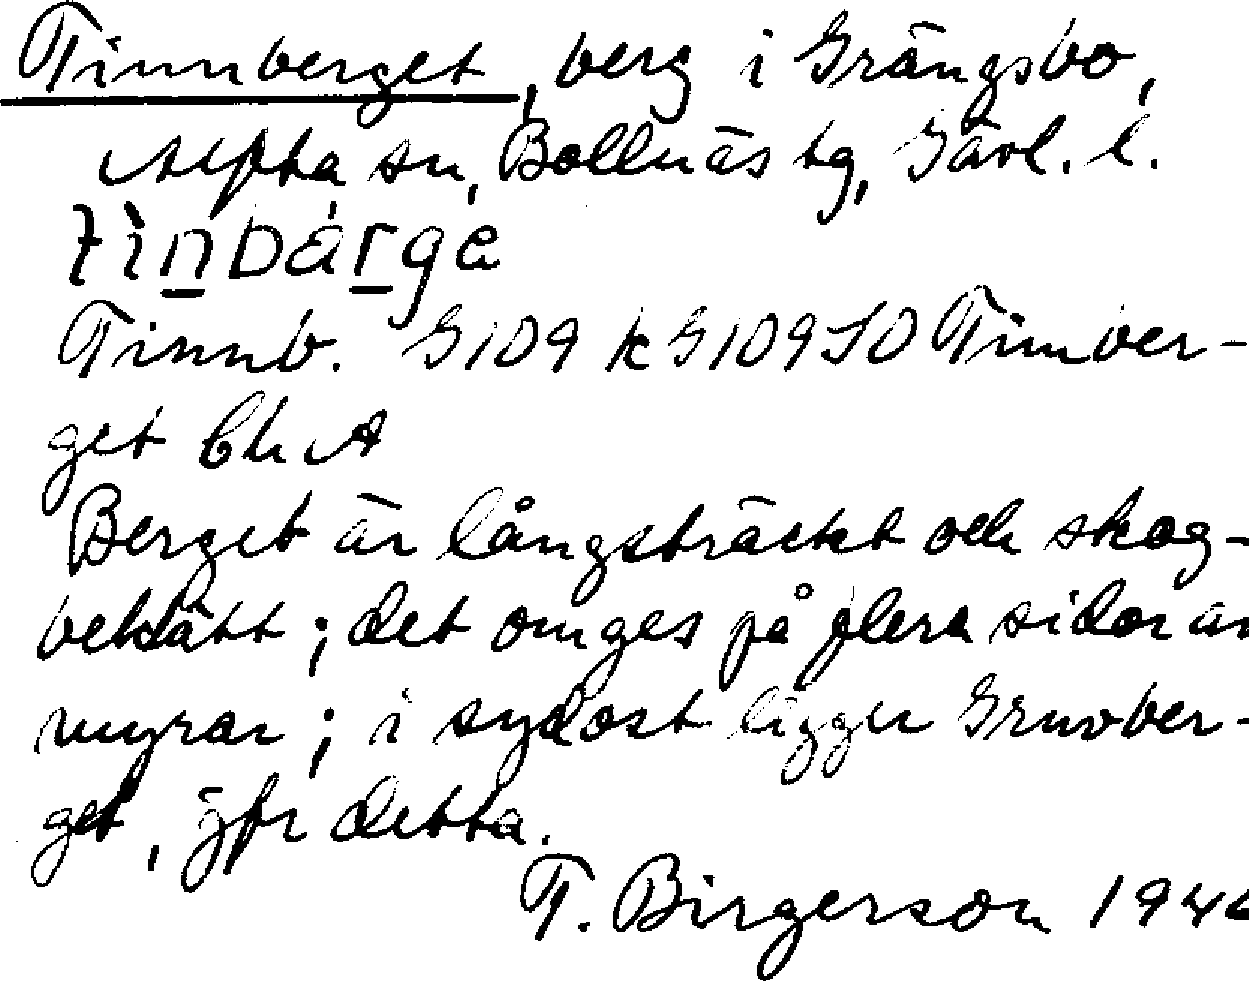 Tinnberget, berg i Grängsbo,
Alfta sn, Bollnäs tg, Gävl. l.
tìnbárgə
Tinnb. G109 k G109SO Tinnber-
get Ch A
Berget är långsträckt och skog-
beklätt; det omges på flera sidor av
myrar; i sydost ligger Gruvber-
get, jfr detta.
T. Birgerson